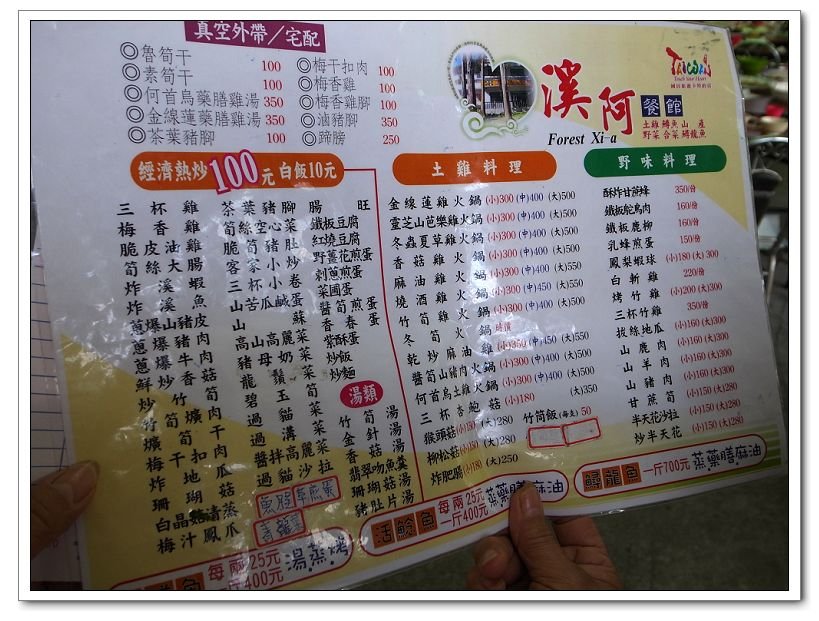 真空外帶／宅配
◎魯筍干 100
◎素筍干 100
◎何首烏藥膳雞湯 350
◎金線蓮藥膳雞湯 350
◎茶葉豬腳 100
◎梅干扣肉 100
◎梅香雞 100
◎梅香雞腳 100
◎滷豬腳 100
◎蹄膀 250
溪阿餐館
Forest Xi-a
Taiwan
Touch Your Heart
土雞 鱒魚 山產
野菜 合菜 鱘龍魚
經濟熱炒100元 白飯10元
三杯雞
梅香雞
脆皮油雞
筍絲大腸
炸溪蝦
炸溪魚
蔥爆山豬皮
蔥爆豬肉
蔥爆牛肉
鮮炒香菇
茶葉豬腳
筍絲空心菜
脆筍豬肚
客家小炒
三杯小卷
山苦瓜鹹蛋
山蘇
高麗菜
山母奶菜
龍鬚菜
碧玉筍
過貓
腸旺
鐵板豆腐
紅燒豆腐
野薑花煎蛋
剝蔥煎蛋
菜圃蛋
醬筍煎蛋
香春蛋
紫酥蛋
炒飯
炒麵
湯類
竹筍湯
金針湯
香菇湯
翡翠吻魚羹
珊瑚菇湯
豬肚片湯
土雞料理
金線蓮雞火鍋 (小)300 (中)400 (大)500
靈芝山芭樂雞火鍋 (小)300 (中)400 (大)500
冬蟲夏草雞火鍋 (小)300 (中)400 (大)500
香菇雞火鍋 (小)300 (中)400 (大)500
麻油雞火鍋 (小)300 (中)400 (大)550
燒酒雞火鍋 (小)300 (中)450 (大)550
竹筍雞火鍋 (小)300 (中)400 (大)500
冬筍火鍋 時價
乾炒麻油雞 (小)350 (中)450 (大)550
醬筍山豬肉火鍋 (小)300 (中)400 (大)500
何首烏土雞火鍋 (小)300 (中)400 (大)500
三杯杏鮑菇 (小)180 (大)350
猴頭菇 (小)150 (大)280
竹筒飯(每支) 50
柳松菇 (小)150 (大)280
炸肥腸 (小)180 (大)250
野味料理
酥炸甘蔗蜂 350/份
鐵板鴕鳥肉 160/份
鐵板鹿柳 160/份
乳蜂煎蛋 150/份
鳳梨蝦球 (小)180 (大)300
白斬雞 220/份
烤竹雞 (小)200 (大)300
三杯竹雞 350/份
拔絲地瓜 (小)160 (大)300
山鹿肉 (小)160 (大)300
山羊肉 (小)160 (大)300
山豬肉 (小)160 (大)300
甘蔗筍 (小)150 (大)280
半天花沙拉 (小)150 (大)280
炒半天花 (小)150 (大)280
活鯰魚 每兩25元 一斤400元 蒸.藥膳.麻油
鱘龍魚 一斤700元 蒸.藥膳.麻油
每兩25元 一斤400元 湯.蒸.烤